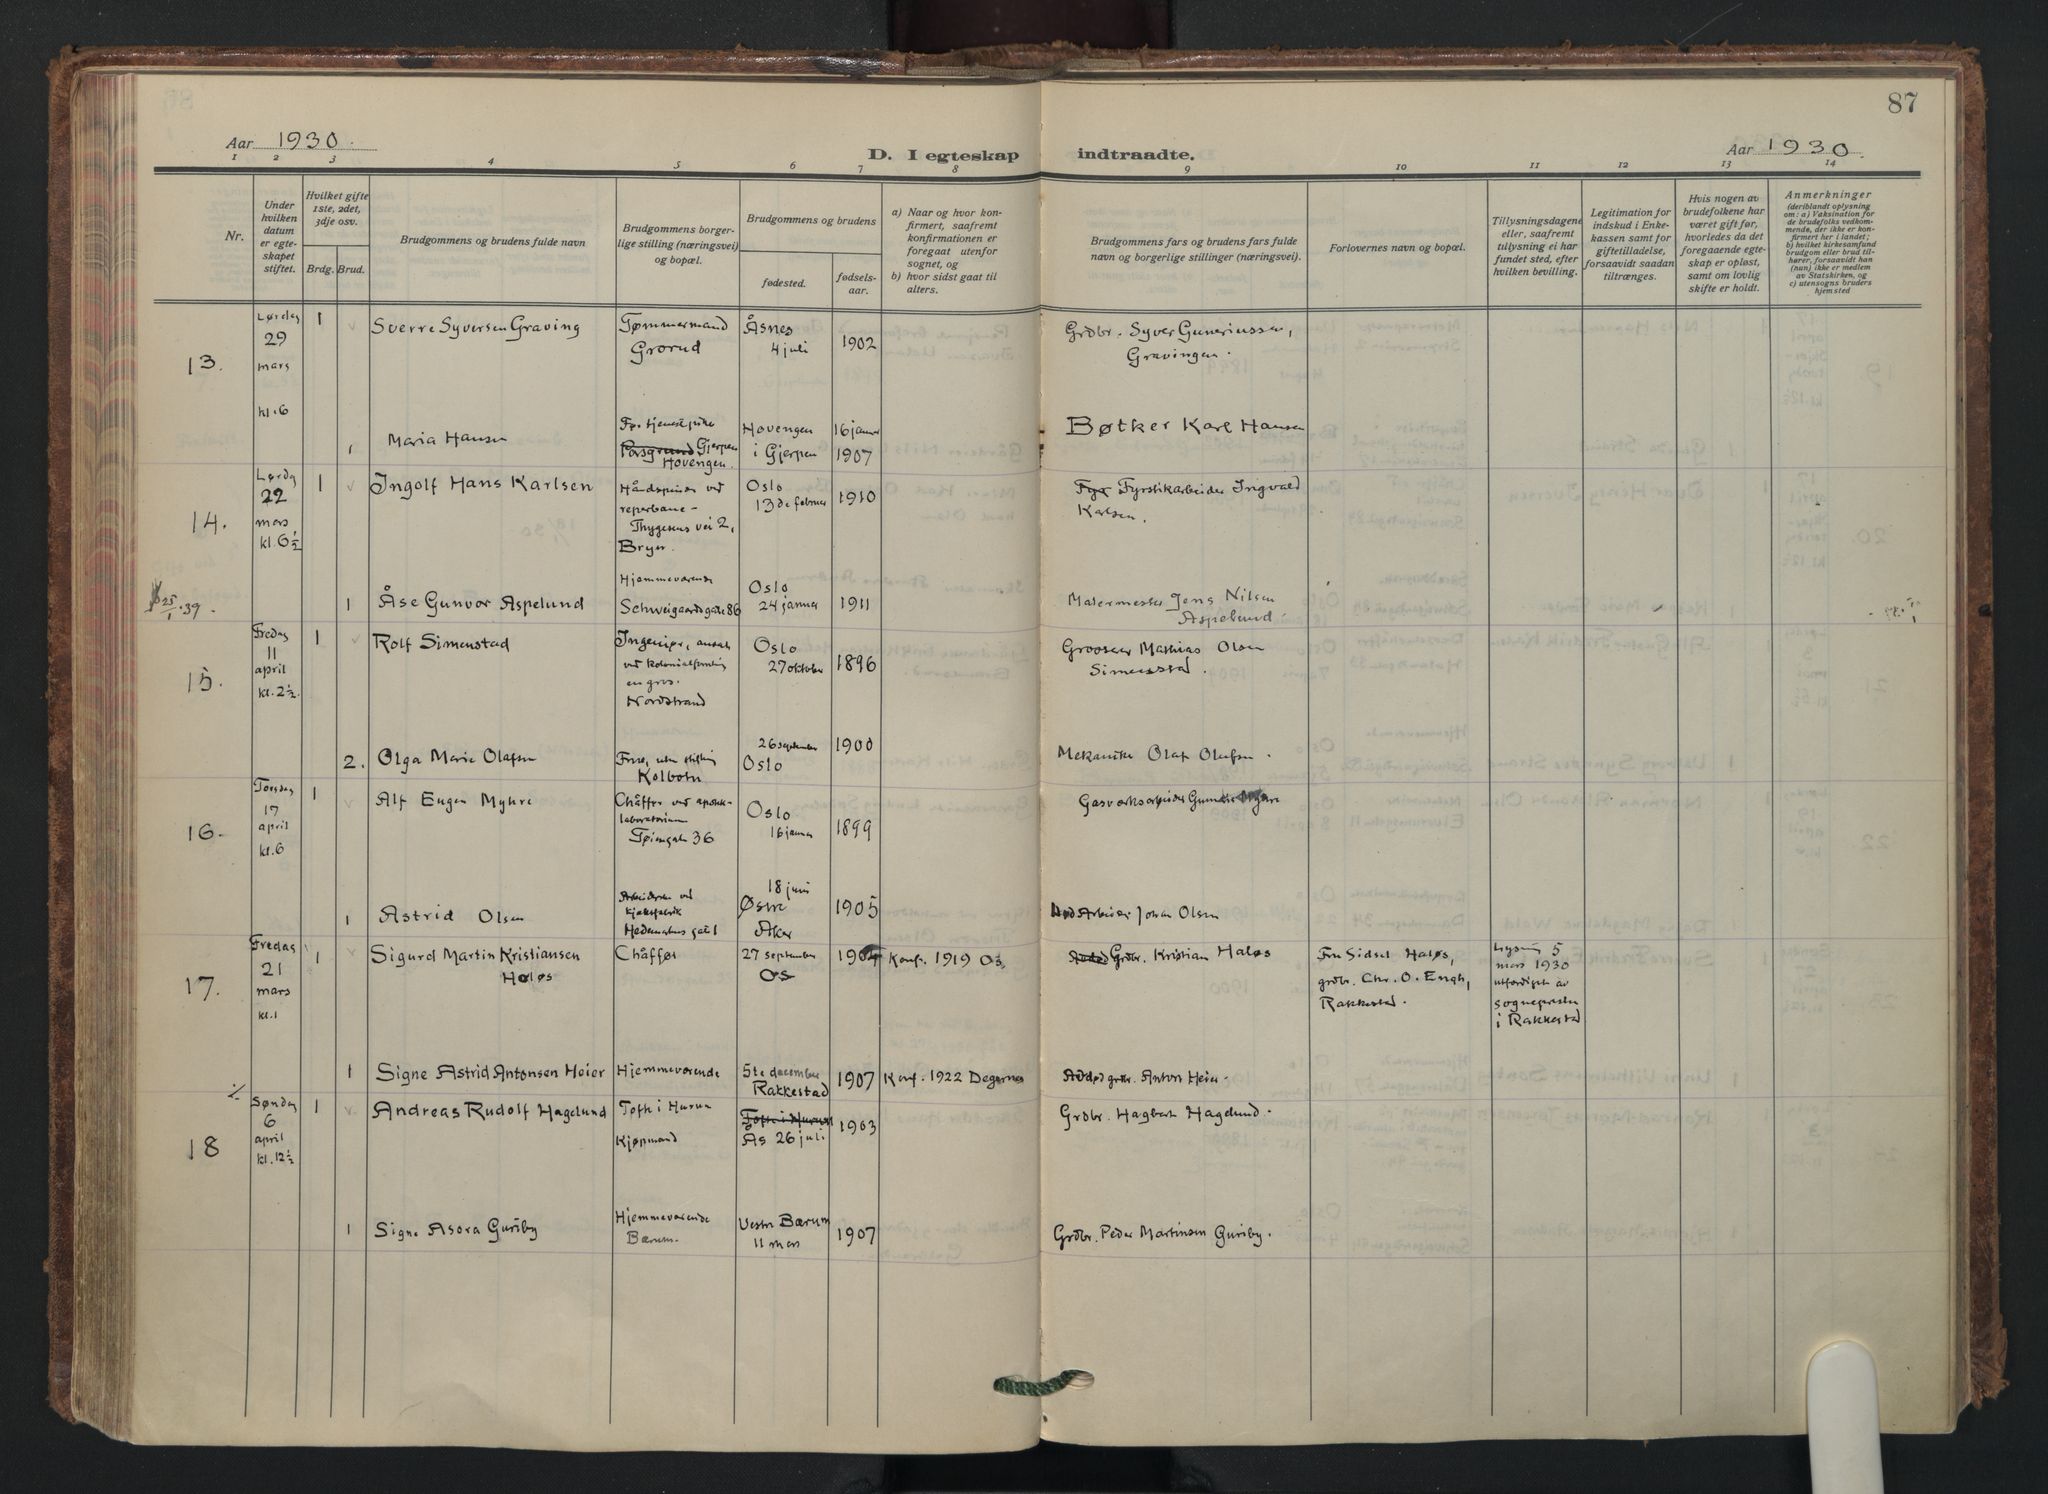 87
Aar 1930.
D. I egteskap indtraadte.
Aar 1930.
1 2 3 4 5 6 7 8 9 10 11 12 13 14
Nr.
Under hvilken datum er egteskapet stiftet.
Hvilket gifte 1ste, 2det, 3dje osv.
Brdg. Brud.
Brudgommens og brudens fulde navn
Brudgommens borgerlige stilling (næringsvei) og bopæl.
Brudgommens og brudens
fødested.
fødselsaar.
a) Naar og hvor konfirmert, saafremt konfirmationen er foregaat utenfor sognet, og
b) hvor sidst gaat til alters.
Brudgommens fars og brudens fars fulde navn og borgerlige stillinger (næringsvei).
Forlovernes navn og bopæl.
Tillysningsdagene eller, saafremt tillysning ei har fundet sted, efter hvilken bevilling.
Legitimation for indskud i Enkekassen samt for giftetilladelse, forsaavidt saadan tiltrænges.
Hvis nogen av brudefolkene har været gift før, hvorledes da det foregaaende egteskap er opløst, samt om lovlig skifte er holdt.
Anmerkninger
(deriblandt oplysning om: a) Vaksination for de brudefolks vedkommende, der ikke er konfirmert her i landet; b) hvilket kirkesamfund brudgom eller brud tilhører, forsaavidt han (hun) ikke er medlem av Statskirken, og c) utensogns bruders hjemsted
13.
Lørdag 29 mars kl. 6
1
Sverre Syversen Graving
Tømmermand Grorud
Åsnes 4 juli
1902
Grdbr. Syver Guneriussen, Gravingen.
1
Maria Hansen
Porsgrund Gjerpen Hovengen.
Hovengen i Gjerpen
16 januar 1907
Bøtker Karl Hansen
14.
Lørdag 22 mars kl. 6½
1
Ingolf Hans Karlsen
Håndspinder ved reperbane - Thygesens vei 2, Bryn.
Oslo 13de februar
1910
Fyrstikarbeider Ingvald Karlsen.
25/1.39.
1
Åse Gunvor Aspelund
Hjemmeværende Schweigaardsgate 86
Oslo 24 januar
1911
Malermester Jens Nilsen Aspelund
15.
Fredag 11 april kl. 2½
1
Rolf Simenstad
Ingeniør, ansat ved kolonialforretning en gros. Nordstrand
Oslo 27 oktober
1896
Grosserer Mathias Olsen Simenstad.
2.
Olga Marie Olafsen
Frue, uten stilling Kolbotn
26 september Oslo
1900
Mekaniker Olaf Olafsen.
16.
Torsdag 17 april kl. 6
1
Alf Eugen Myhre
Chåffør ved apotek-laboratorium Tøiengaten 36
Oslo 16 januar
1899
Gasverksarbeider
1
Astrid Olsen
Arbeiderske ved kjeksfabrik Hedemarkens gate 1
18 juni Østre Aker
1905
Arbeider Johan Olsen
17.
Fredag 21 mars kl. 1
1
Sigurd Martin Kristiansen Haløs
Chåffør
27 september Os
1904
Konf. 1919 Os
Grdbr. Kristian Haløs
Fru Sidsel Haløs, grdbr. Chr. O. Engh, Rakkestad.
Lysning 5 mars 1930 utfærdiget av sognepresten i Rakkestad
1
Signe Astrid Antonsen Heier
Hjemmeværende
5te december Rakkestad
1907
Konf. 1922 Degernes
død grdbr. Anton Heier.
18
Søndag 6 april kl. 12½
1
Andreas Rudolf Hagelund
Tofte i Hurum Kjøpmand
Tofte i Hurum Ås 26 juli
1903
Grdbr. Hagbart Hagelund.
1
Signe Asora Guriby
Hjemmeværende Bærum.
Vestre Bærum 11 mars
1907
Grdbr. Peder Martinsen Guriby.